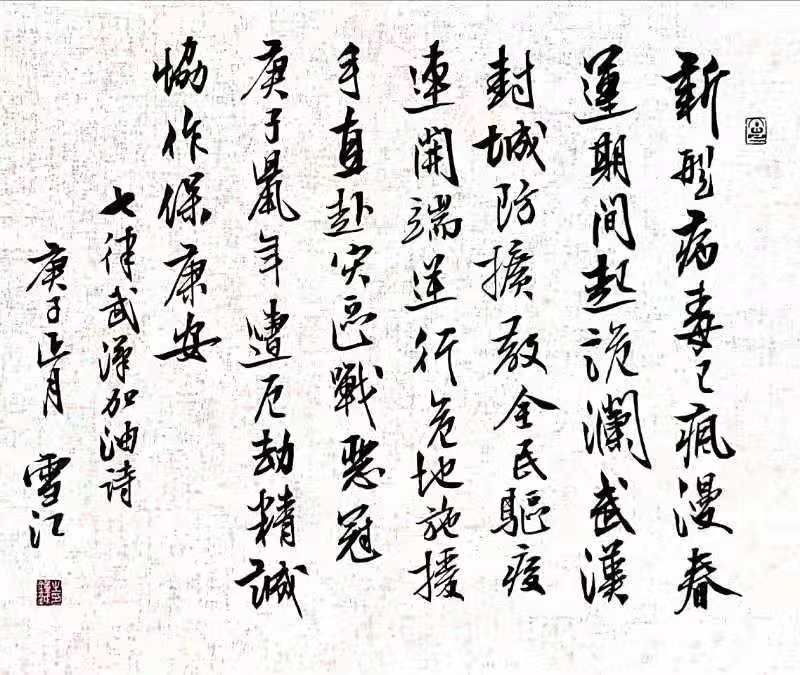 新型病毒已瘋漫春
運期間起詭瀾武漢
封城防擴散全民驅疫
連開端逆行危地施援
手直赴灾區戰惡冠
庚子鼠年遭厄劫精誠
協作保康安
七律武漢加油詩
庚子正月 雪江